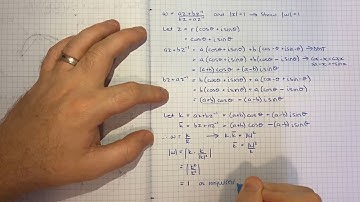 w = az+bz⁻¹ / bz+az⁻¹ and |z|=1 → Show |w|=1
Let z = r(cosθ+isinθ)
= cosθ+isinθ
az+bz⁻¹ = a(cosθ+isinθ) + b(cosθ+isinθ)⁻¹ → DMT
= a(cosθ+isinθ) + b(cosθ-isinθ)
= (a+b)cosθ + (a-b)isinθ
bz+az⁻¹ = b(cosθ+isinθ) + a(cosθ-isinθ)
= (a+b)cosθ - (a-b)isinθ
Let k = az+bz⁻¹ = (a+b)cosθ + (a-b)isinθ
k̄ = bz+az⁻¹ = (a+b)cosθ - (a-b)isinθ
∴ w = k / k̄ → k.k̄ = |k|²
k̄ = |k|² / k
|w| = |k . k / |k|²|
= |k² / |k|²|
= 1 as required